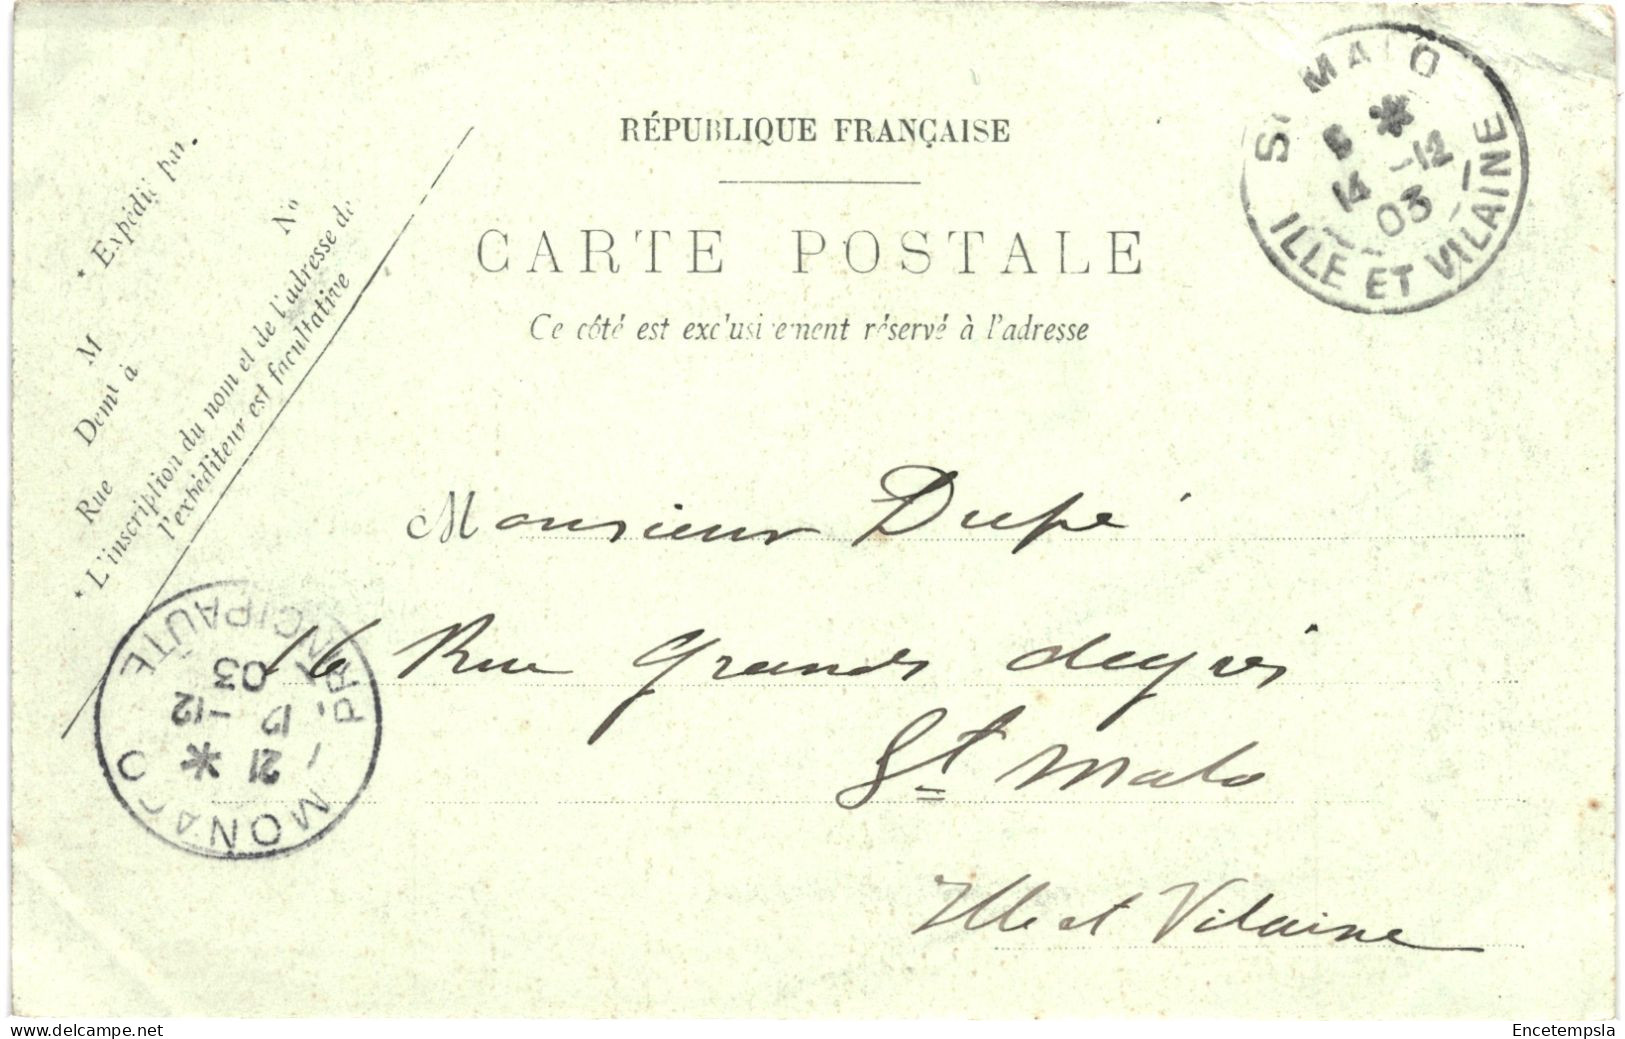 RÉPUBLIQUE FRANÇAISE
CARTE POSTALE
Ce côté est exclusivement réservé à l'adresse
* Expédié par.
M
Demt à
Rue Nº
* L'inscription du nom et de l'adresse de
l'expéditeur est facultative
St MALO
* 14 -12
03
ILLE ET VILAINE
Monsieur Dupé
16 Rue Grands degrés
St Malo
Ille et Vilaine
MONACO
21 *
12 -12
03
PRINCIPAUTE
delcampe.net
Encetempsla